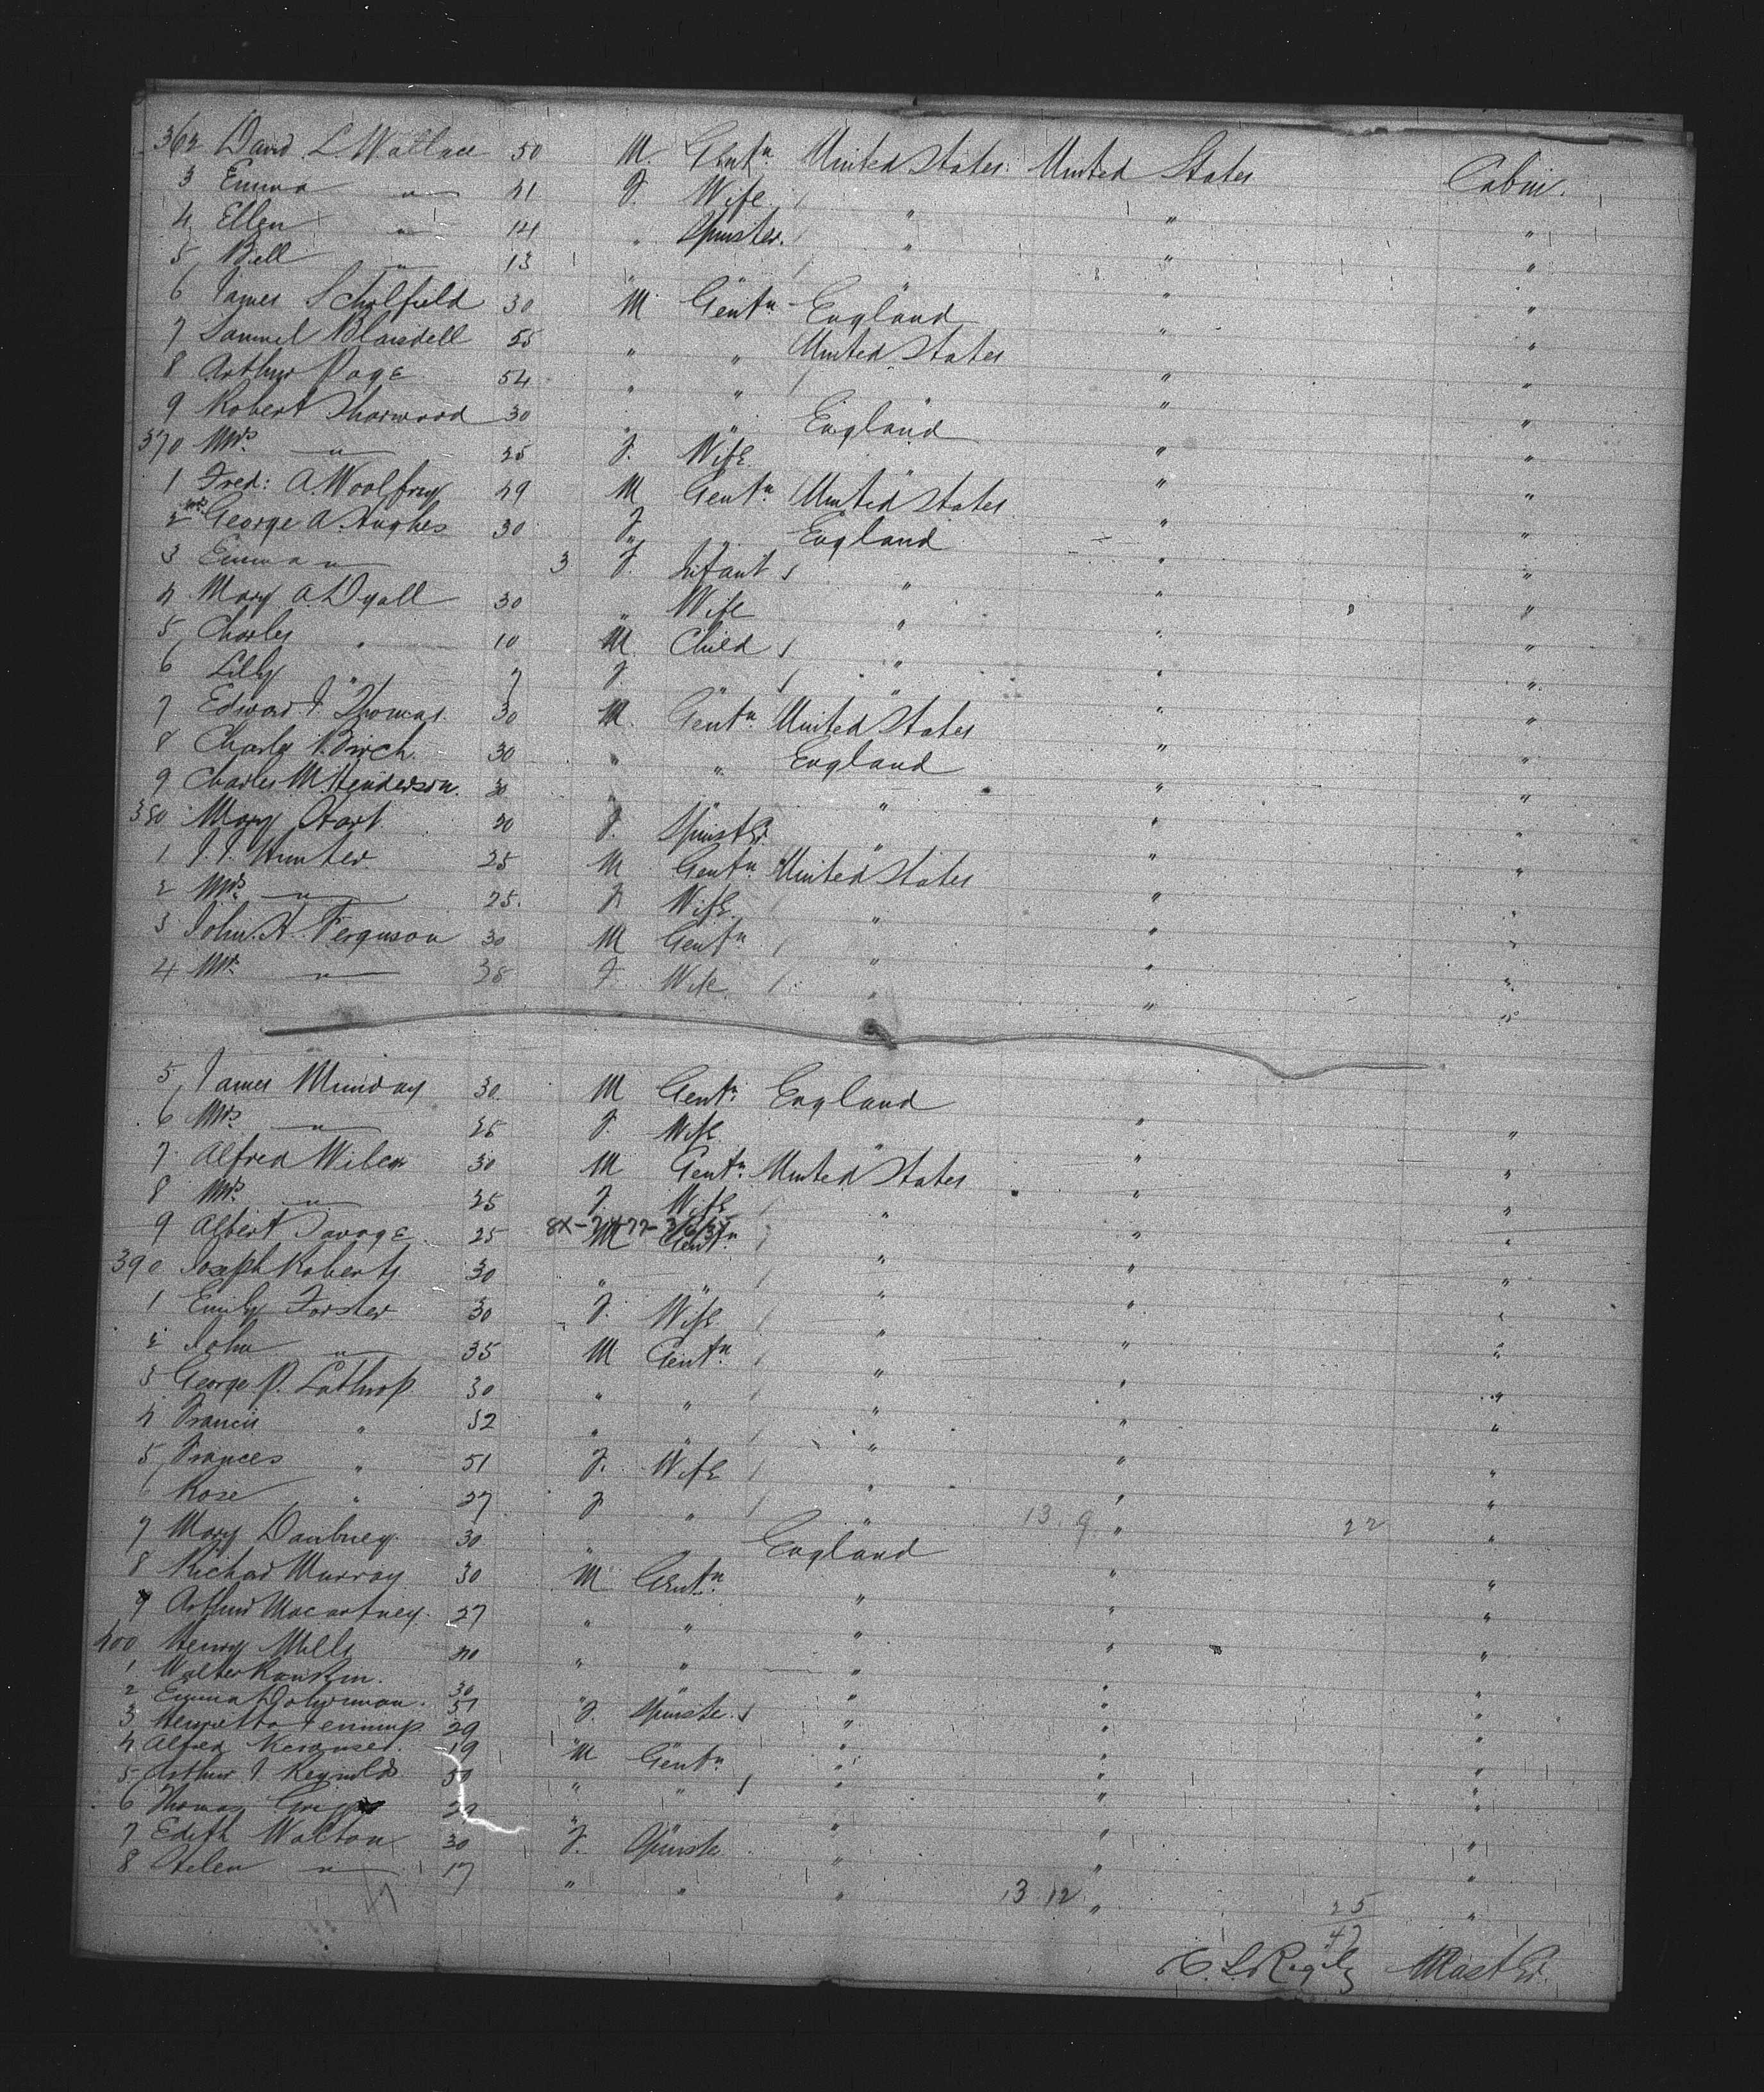 362 David L. Wallace 50 M. Gentn United States United States Cabin.
3 Emma " 41 F. Wife " " "
4 Ellen " 14 " Spinster. " " "
5 Bell " 13 " " " " "
6 James Scholfield 30 M Gentn England " "
7 Samuel Blaisdell 55 " " United States " "
8 Arthur Page 54 " " " " "
9 Robert Thorwood 30 " " England " "
370 Mrs " 25 F. Wife " " "
1 Fred: A. Woolfrey 29 M Gentn United States " "
2 Mrs George A. Hughes 30 F " England " "
3 Emma " 3 F. Infant " " "
4 Mary A. Dyall 30 " Wife " " "
5 Charles " 10 M. Child " " "
6 Lilly " 7 F " " " "
7 Edward J. Thomas 30 M. Gentn United States " "
8 Charles Birch 30 " " England " "
9 Charles M. Henderson. 30 " " " " "
380 Mary Hart 20 F. Spinster " " "
1 J. J. Hunter 25 M Gentn United States " "
2 Mrs " 25. F Wife " " "
3 John. H. Ferguson 30 M Gentn " " "
4 Mrs " 38 F Wife " " "
5 James Munday 30. M Gentn England " "
6 Mrs " 25 F. Wife " " "
7 Alfred 30 M Gentn United States " "
8 Mrs " 25 F. Wife " " "
9 Albert Savage 25 M Gentn " " "
390 Joseph Roberts 30 " " " " "
1 Emily Forster 30 F. Wife " " "
2 John " 35 M Gentn " " "
3 George P. Lathrop 30 " " " " "
4 Francis " 52 " " " " "
5 Frances " 51 F. Wife " " "
Rose " 27 F " " 13. 9. " 22 "
7 Mary Daubney. 30 " " England " "
8 Richard Murray 30 M Gentn " " "
9 Arthur Macartney. 27 " " " " "
400 Henry Mills " " " " "
1 Walter Rankin. 30 " " " " "
2 Emma 51 F. Spinster " " "
3 Henrietta 29 " " " " "
4 Alfred 19 M Gentn " " "
5 Arthur J. Reynolds 50 " " " " "
6 Thomas " " " " "
7 Edith Walton 30 F. Spinster " " "
8 Helen " 17 " " " 13 12 " 25 "
47 47
Master.